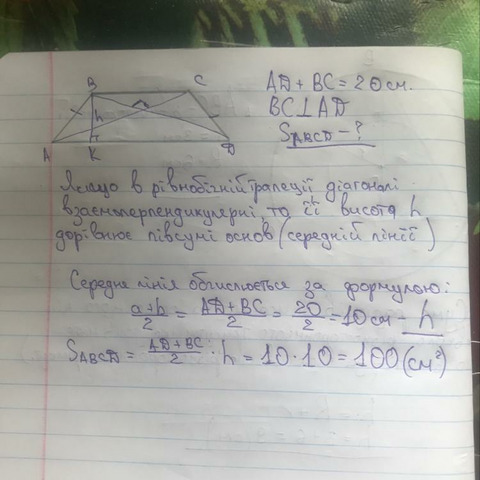 B C
h
A K D
AD + BC = 20 см.
BC ⊥ AD
S_ABCD - ?
Якщо в рівнобічній трапеції діагоналі
взаємоперпендикулярні, то її висота h
дорівнює півсумі основ (середній лінії)
Середня лінія обчислюється за формулою:
a+b/2 = AD+BC/2 = 20/2 = 10 см - h
S_ABCD = AD+BC/2 · h = 10 · 10 = 100 (см²)